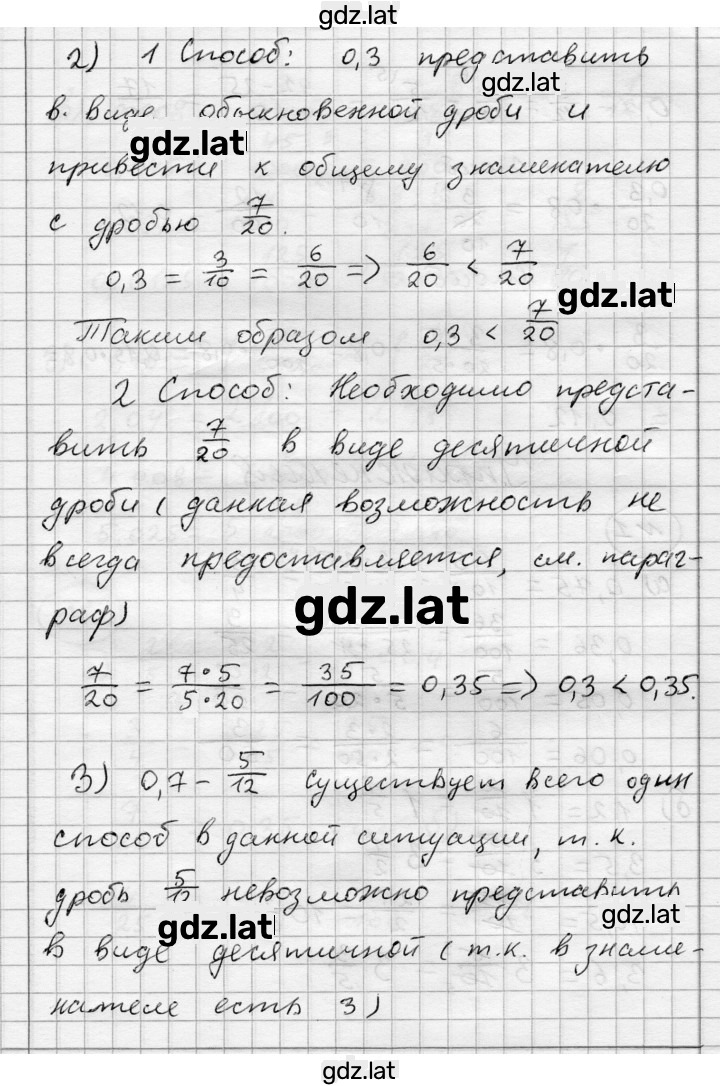 gdz.lat
2) 1 Способ: 0,3 представить
gdz.lat
в виде обыкновенной дроби и
gdz.lat
привести к общему знаменателю
с дробью 7/20.
0,3 = 3/10 = 6/20 => 6/20 < 7/20
gdz.lat
Таким образом 0,3 < 7/20
2 Способ: Необходимо предста-
вить 7/20 в виде десятичной
дроби ( данная возможность не
всегда предоставляется, см. параг-
раф)
gdz.lat
7/20 = 7·5/5·20 = 35/100 = 0,35 => 0,3 < 0,35.
3) 0,7 - 5/12 существует всего один
способ в данной ситуации, т. к.
дробь 5/12 невозможно представить
gdz.lat
gdz.lat
в виде десятичной ( т.к. в знаме-
нателе есть 3)
gdz.lat